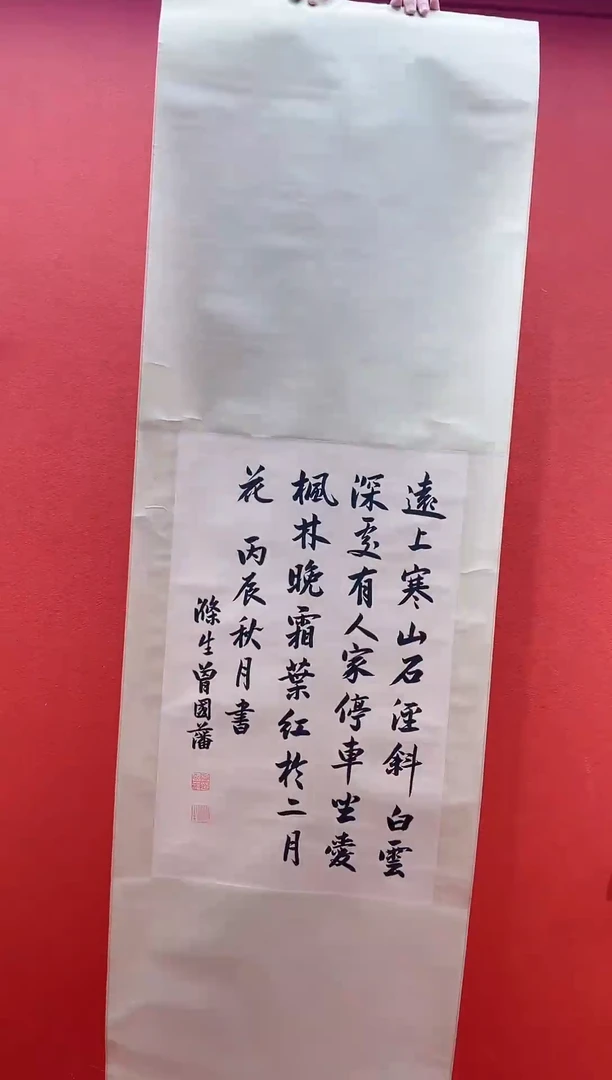 遠上寒山石徑斜白雲
深䖏有人家停車坐愛
楓林晚霜葉紅於二月
花 丙辰秋月書
滌生曾國藩